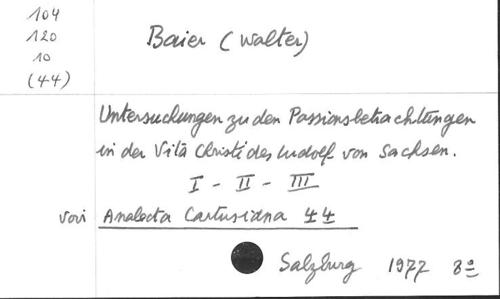 104
120
10
(44)
Baier (Walter)
Untersuchungen zu den Passionsbetrachtungen
in der Vita Christi des Ludolf von Sachsen.
I - II - III
voir Analecta Cartusiana 44
Salzburg 1977 8º